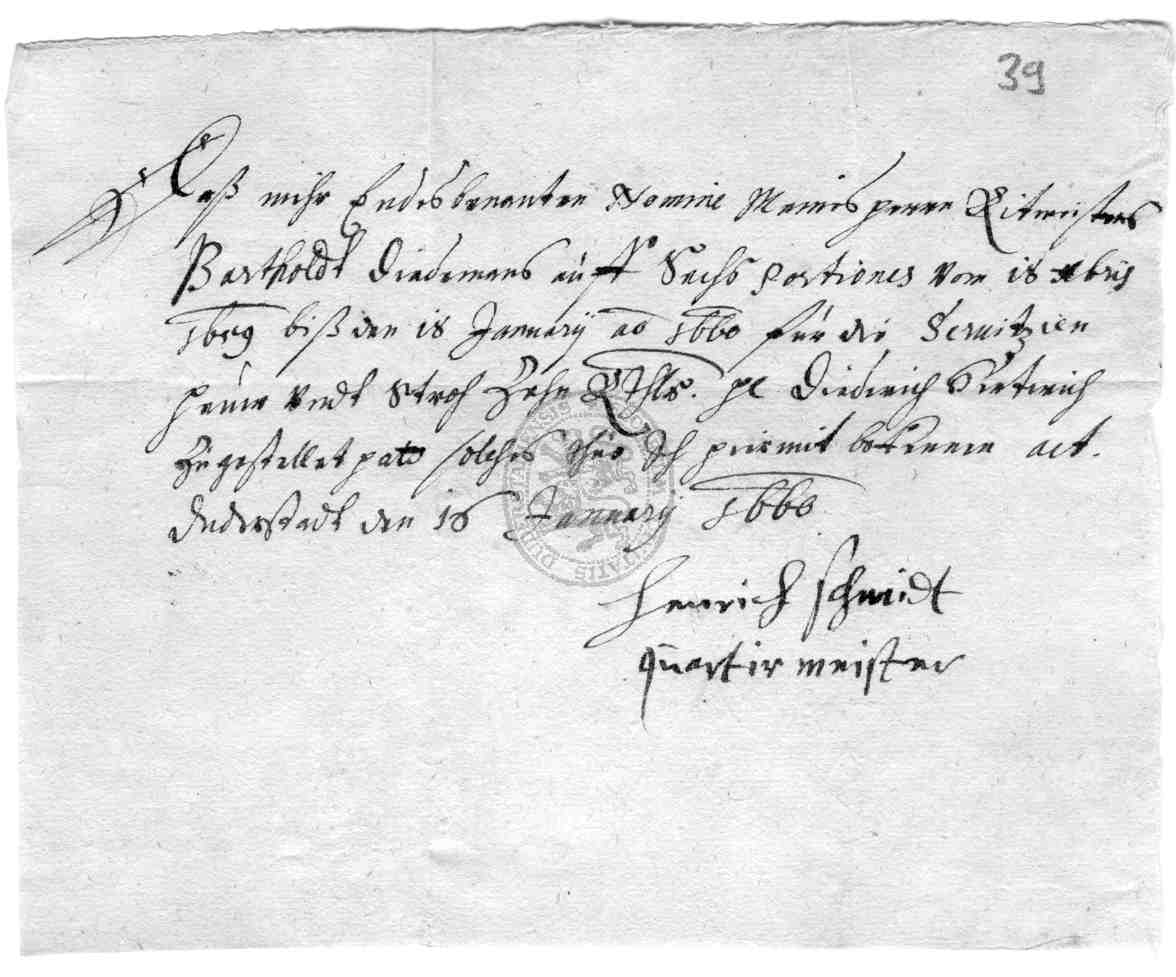 39
Daß mihr Endesbenanten Nomine Meines herrn Ritmeisters
Bartholdt Diedemans auff Sechs portiones vom 18 xbris
1659 biß den 18 January ao 1660 für die Servitzien
heuw vndt Stroh Zehn Rthlr. he Diederich
Zugestellet hatt solches thue Ich hiermit bekennen act.
Duderstadt den 18 January 1660
Henrich Schmidt
quartir meister